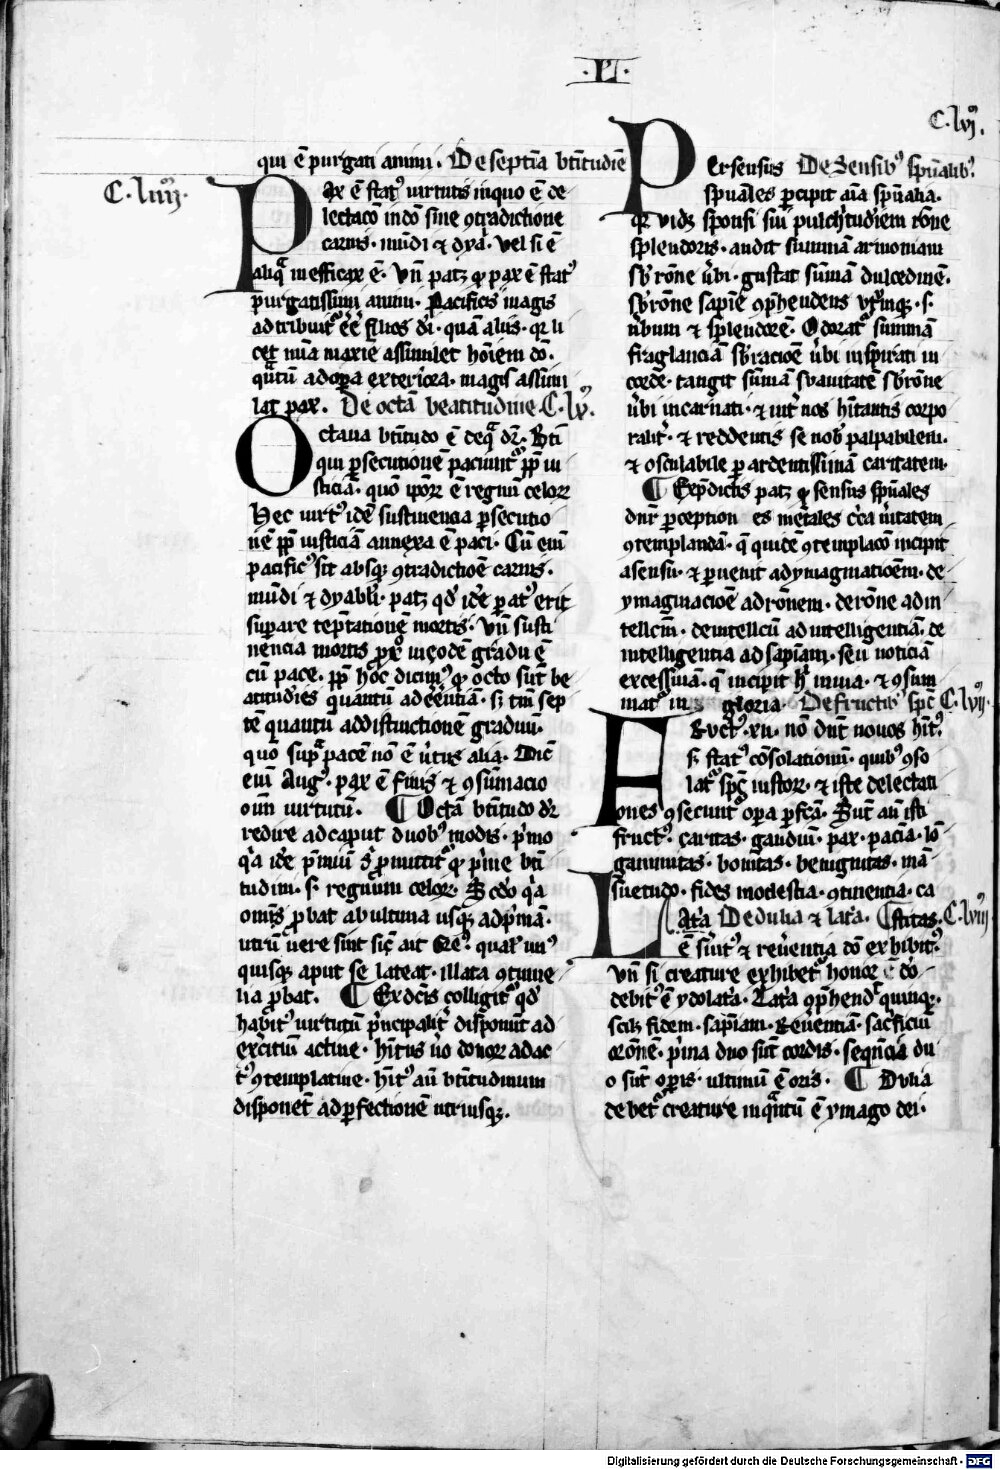 ·VI·
qui ē purgati animi. De septīa btītudīe
C. liiij.
Pax ē stat᷒ uirtutis in quo ē de
lectaco͞ in do͞ sine ꝯtradictione
carnis · mūdi ⁊ dyā · Vel si ē
aliqͣ inefficax ē · Vn̄ patꝫ ꝙ pax ē stat᷒
purgatissimi animi · Pacificis magis
adtribuit᷑ eē filios di · quā aliis · qꝛ li
cet nūa maxīe assimilet hoīem do͞ ·
quātū ad oꝑa exteriora · magis assimi
lat pax. De octā beatitudine. C. lv.
Octaua btītudo ē de qͣ dr̄ · Bti̅
qui ꝑsecutionē paciūnt᷑ ꝓp̄ iu
sticiā · quo͞ ip̄oꝝ ē regnū celoꝝ
Hec uirt᷒ idē sustinencia ꝑsecutio
nē ꝓp̄ iusticiā annexa ē paci · Cū enī
pacific᷒ sit absqꝫ ꝯtradictioē carnis ·
mūdi ⁊ dyabli · patꝫ qd̄ idē ꝑat᷒ erit
suꝑare teptationē mortis · Vn̄ susti
nencia mortis in eodē gradu ē
cū pace. ꝓp̄ hoc dicim᷒ ꝙ octo sūt be
atitudies quantū ad eēntiā · s; tm̄ sep
tē quantū ad distinctionē graduū ·
quo͞ supͣ pacē no͞ ē uirtus alia · Dic̄
enī Aug᷒ · pax ē finis ⁊ ꝯsumacio
oīum uirtutū. ¶ Octā btītudo dr̄
redire ad caput duob᷒ modis · p̄mo
qͣ idē p̄miū ꝓmittit᷑ ꝙ p̄me btī
tudini · s · regnum celoꝝ · Scdo qͣ
om̄s ꝓbat ab ultima usqꝫ ad p̄mā ·
utrū uere sint sic̄ ait Gre᷒ · qual᷒ un᷒
quisqꝫ aput se lateat · illata ꝯtume
lia ꝓbat. ¶ Ex dcīs colligit᷑ qd̄
habit᷒ uirtutū p̄ncipalit᷑ disponūt ad
exercitiū actiue · hītus uo͞ donoꝝ ad ac
t᷒ ꝯtemplatiue · hīt᷒ aū btītudinum
disponēt ad ꝑfectionē utriusqꝫ.
C. lvj.
Per sensus De Sensib᷒ spūalib᷒
spūales ꝑcipit aīa spūalia ·
qꝛ uidꝫ sponsi sui pulchtudīem ro͞ne
splendoris · audit summā armoniam
sb̄ ro͞ne ūbi · gustat sūmā dulcedinē ·
sb̄ ro͞ne sapīe ꝯp̄hendens utr̄mqꝫ · s ·
ūbum ⁊ splendorē · Odorat᷑ summā
fraglanciā sb̄ racioē ūbi inspirati in
corde · tangit sūmā suauitatē sb̄ ro͞ne
ūbi incarnati · ⁊ int᷑ nos hītantis corpo
ralit᷑ · ⁊ reddentis se nob̄ palpabilem ·
⁊ osculabile ꝑ ardentissimā caritatem ·
¶ Ex p̄dictis patꝫ ꝙ sensus spūales
dnr̄ ꝑceptiones mētales cca uitatem
ꝯtemplandā · q̄ quidē ꝯtemplaco͞ incipit
a sensu · ⁊ ꝑuenit ad ymaginatioēm · de
ymaginacioē ad ro͞nem · de ro͞ne ad in
tellcm̄ · de intellcū ad intelligentiā · de
intelligentia ad sapīam · seu noticiā
excessiuā · q̄ incipit hͥ in uia · ⁊ ꝯsum
mat᷑ in gloria · De fructib᷒ spc̄ C. lvij.
Fruct᷒ · xii · no͞ dnt̄ nouos hīt᷒ ·
s; stat᷒ co͞solationū · quib᷒ ꝯso
lat᷑ spc̄ iustoꝝ · ⁊ iste delectati
ones ꝯsecunt᷑ oꝑa ꝑfcā · Sūt aū isti
fruct᷒ · caritas · gaudiū · pax · pacīa · lo͞
ganimitas · bonitas · benignitas · mā
suetudo · fides modestia · ꝯtinentia · ca
Latia De dulia ⁊ latīa. ¶ stitas. C. lviij
ē s̄uit᷒ ⁊ reūentia do͞ exhibit᷒ ·
Vn̄ si creature exhibet᷑ honor ē do͞
debit᷒ ē ydolatīa · Latīa ꝯp̄hend᷑ quinqꝫ ·
scilꝫ fidem · sapīam · Reūentiā · sac̄ficiū
oro͞nē · p̄ma duo sūt cordis · seqn̄cia du
o sūt oꝑis · ultimū ē oris · ¶ Dulia
debet᷑ creature inqͣntū ē ymago dei ·
Digitalisierung gefördert durch die Deutsche Forschungsgemeinschaft · DFG